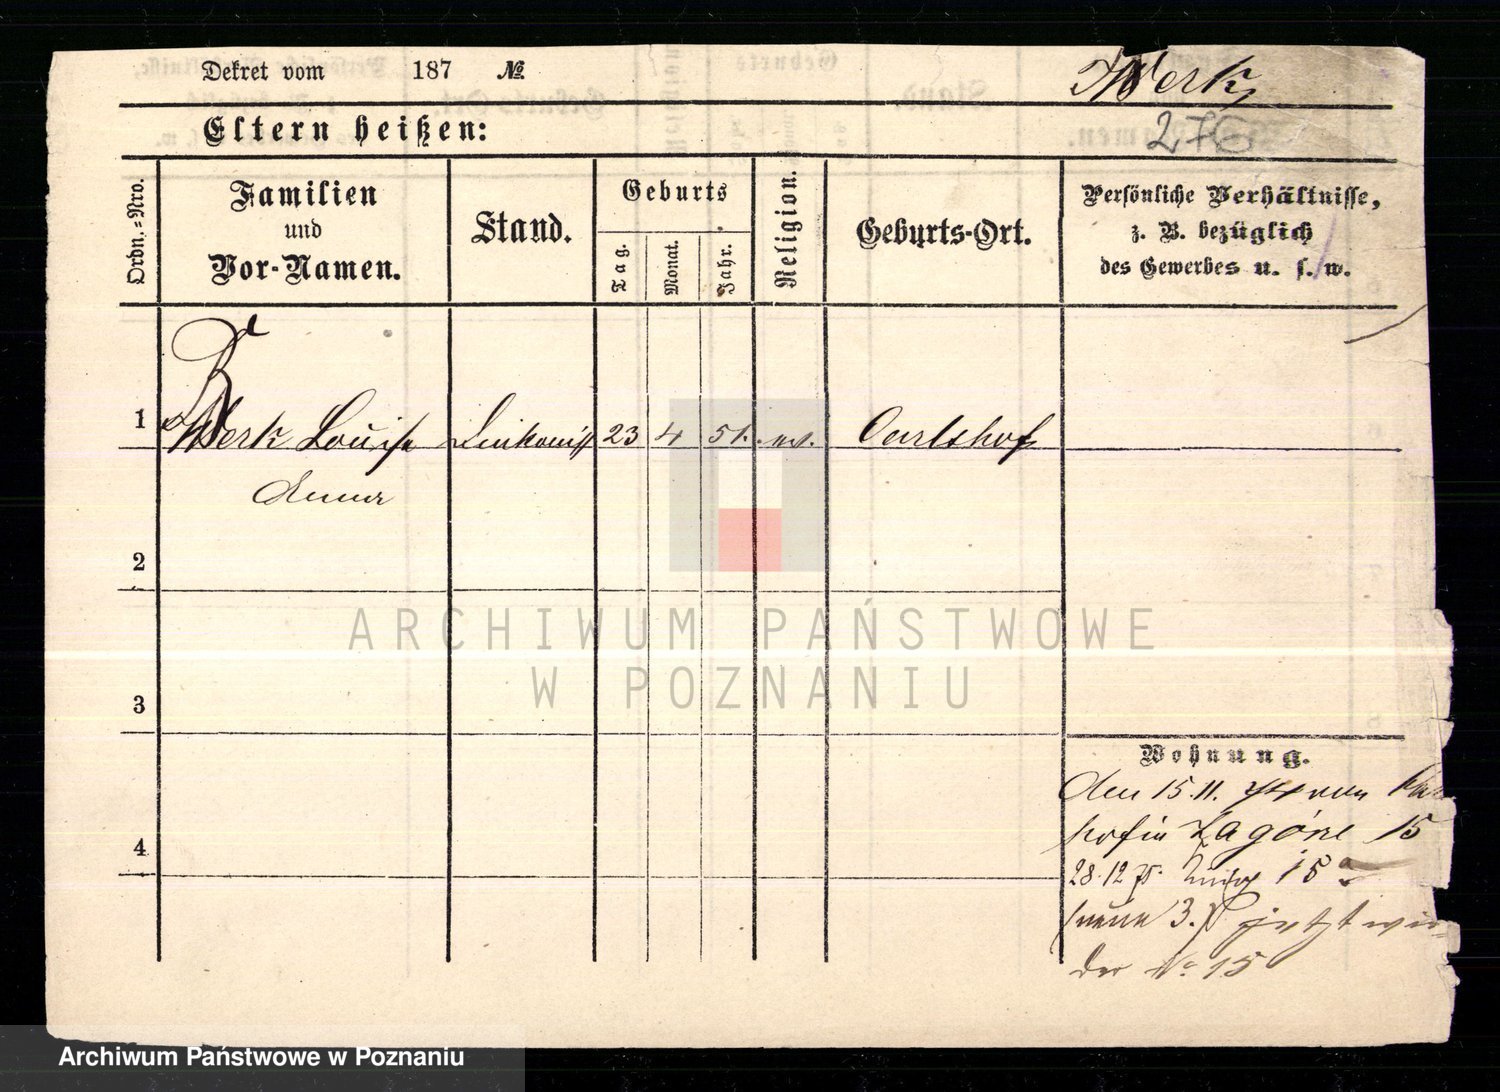 Dekret vom 187 №
Werk
276
Eltern heißen:
Ordn.=Nro.
Familien
und
Vor-Namen.
Stand.
Geburts
Tag.
Monat.
Jahr.
Religion.
Geburts-Ort.
Persönliche Verhältnisse,
z. B. bezüglich
des Gewerbes u. s. w.
1 Werk Louise 23 4 51. ev. Carlshof
Anna
2
ARCHIWUM PAŃSTWOWE
W POZNANIU
3
Wohnung.
den 15.11. von
hof in Zagórze 15
4
28.12 15
(neue 3.) jetzt wie-
der No 15
Archiwum Państwowe w Poznaniu